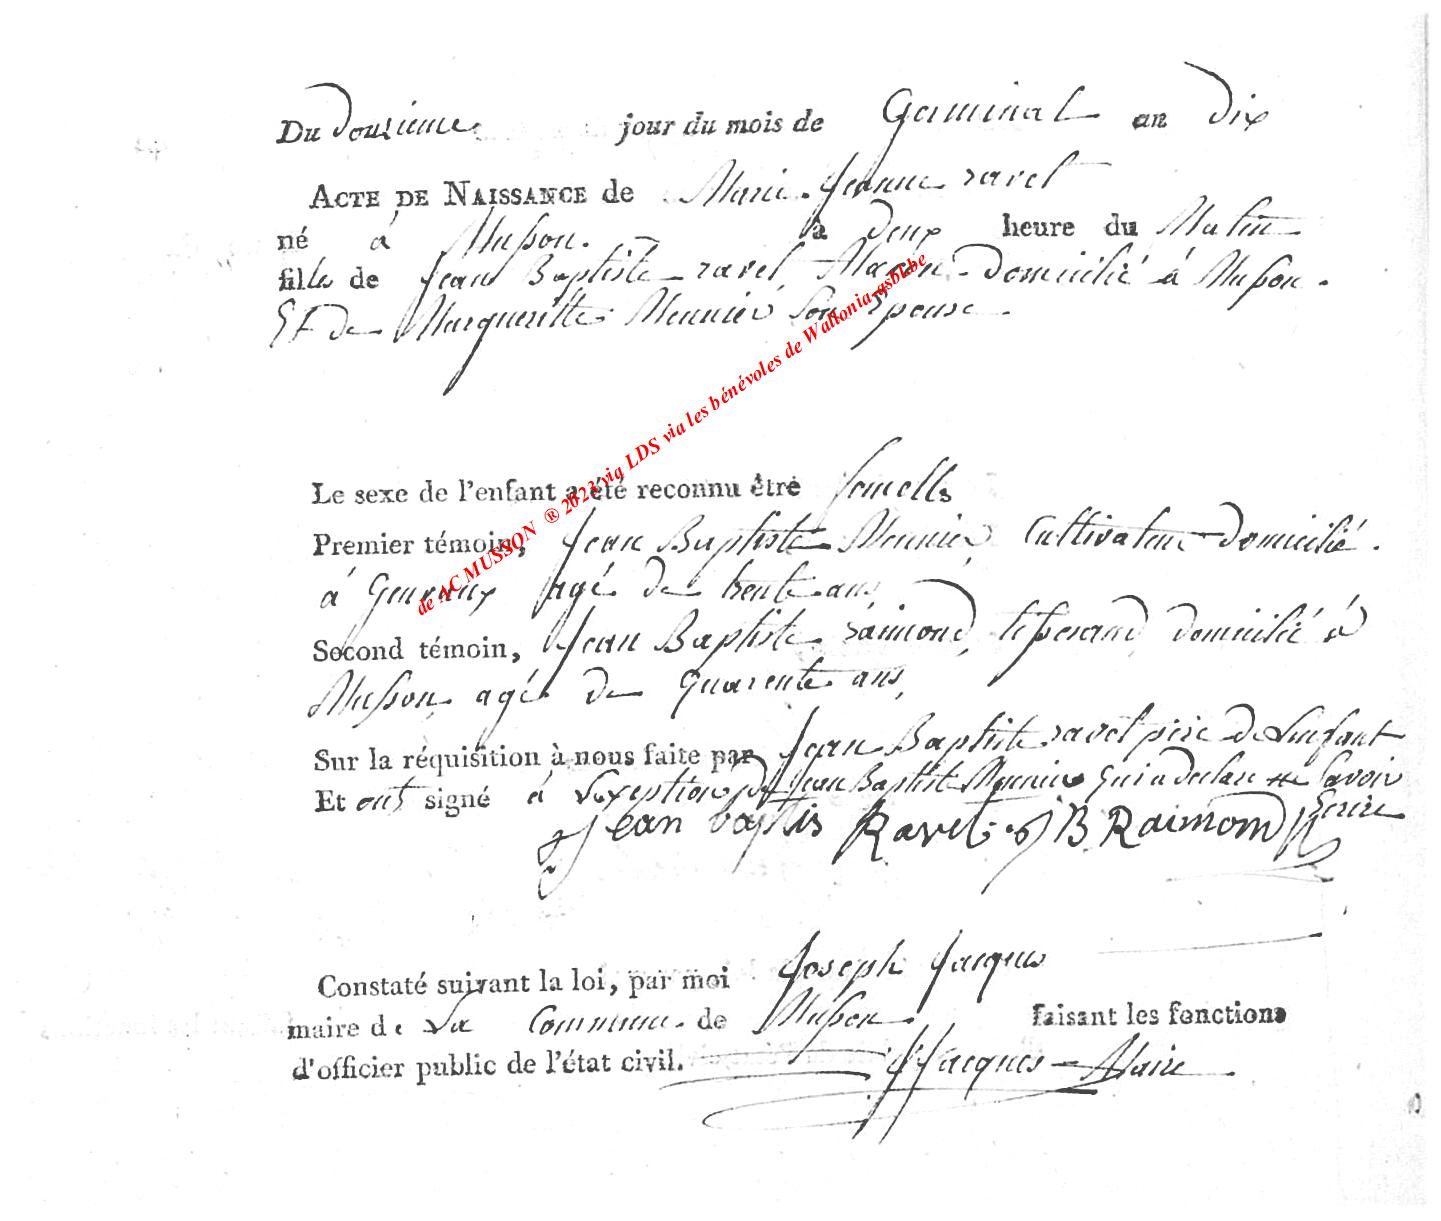 Du douzieme jour du mois de Germinal an dix
ACTE DE NAISSANCE de Marie Jeanne ravet
né à Musson. à deux heure du Matin
fille de Jean Baptiste ravet Maçon domicilié à Musson.
Et de Margueritte Meunier Son Epouse
Le sexe de l'enfant a été reconnu être femelle
Premier témoin, Jean Baptiste Meunier Cultivateur domicilié.
à Gennaux agé de trente ans
Second témoin, Jean Baptiste raimond, tisserand domicilié à
Musson agé de Quarente ans,
Sur la réquisition à nous faite par Jean Baptiste ravet pere de Lenfant
Et ont signé à Lexeption de Jean Baptiste Meunier qui a declare ne Savoir
Ecrire
Jean baptis Ravet JB Raimond
Constaté suivant la loi, par moi Joseph Jacques
maire de La Commune de Musson faisant les fonctions
d'officier public de l'état civil. J Jacques Maire
de AC MUSSON ® 2023 via LDS via les bénévoles de Wallonia-asbl.be